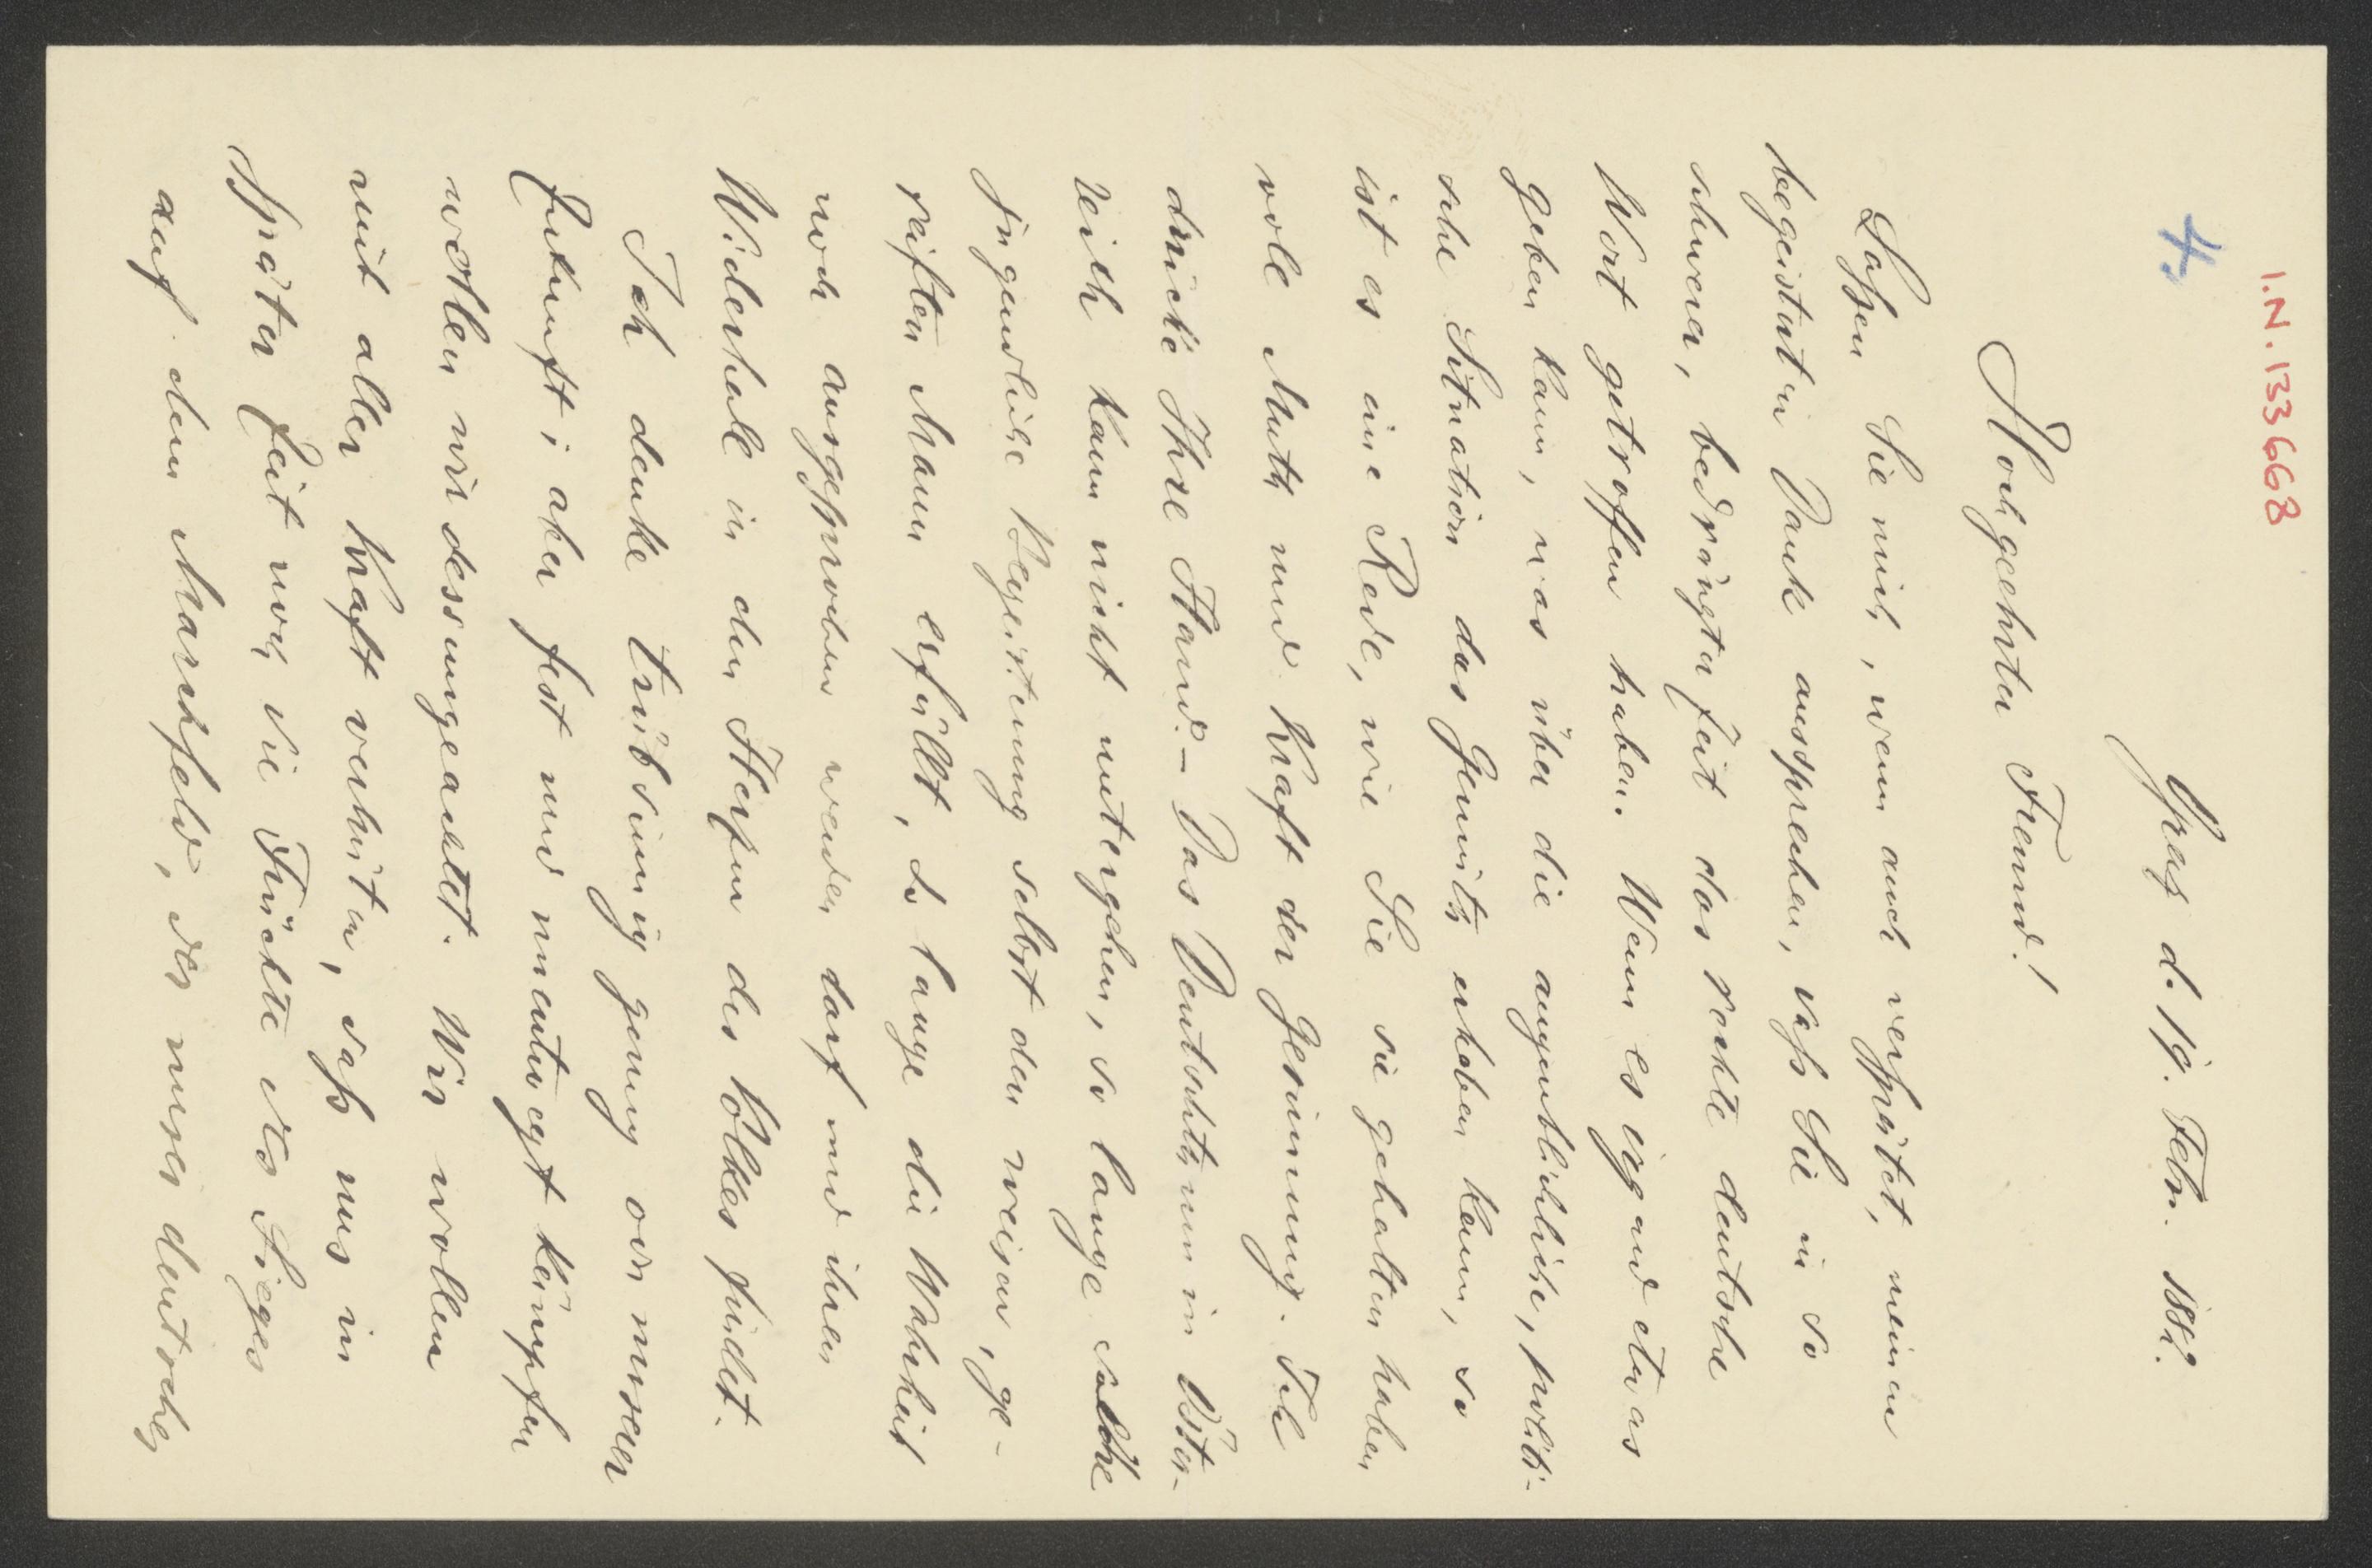 I.N. 133668
4.
Graz d. 19. Febr. 1882.
Hochgeehrter Freund!
Laßen Sie mich, wenn auch verspätet, meinen
begeisterten Dank aussprechen, daß Sie in so
schwerer, bedrängter Zeit das rechte deutsche
Wort getroffen haben. Wenn es irgend etwas
geben kann, was über die augenblickliche, politi-
sche Situation das Gemüth erheben kann, so
ist es eine Rede, wie Sie sie gehalten haben
voll Muth und Kraft der Gesinnung. Ich
drücke Ihre Hand. – Das Deutschthum in Öster-
reich kann nicht untergehen, so lange solche
jugendliche Begeisterung selbst den weisen, ge-
reiften Mann erfüllt, so lange die Wahrheit
noch ausgesprochen werden darf und ihren
Widerhall in den Herzen des Volkes findet.
Ich denke trübsinnig genug von unserer
Zukunft; aber fest und unentwegt kämpfen
wollen wir dessungeachtet. Wir wollen
mit aller Kraft verhüten, daß uns in
später Zeit noch die Früchte des Sieges
auf dem Marchfeld, der unser deutsches